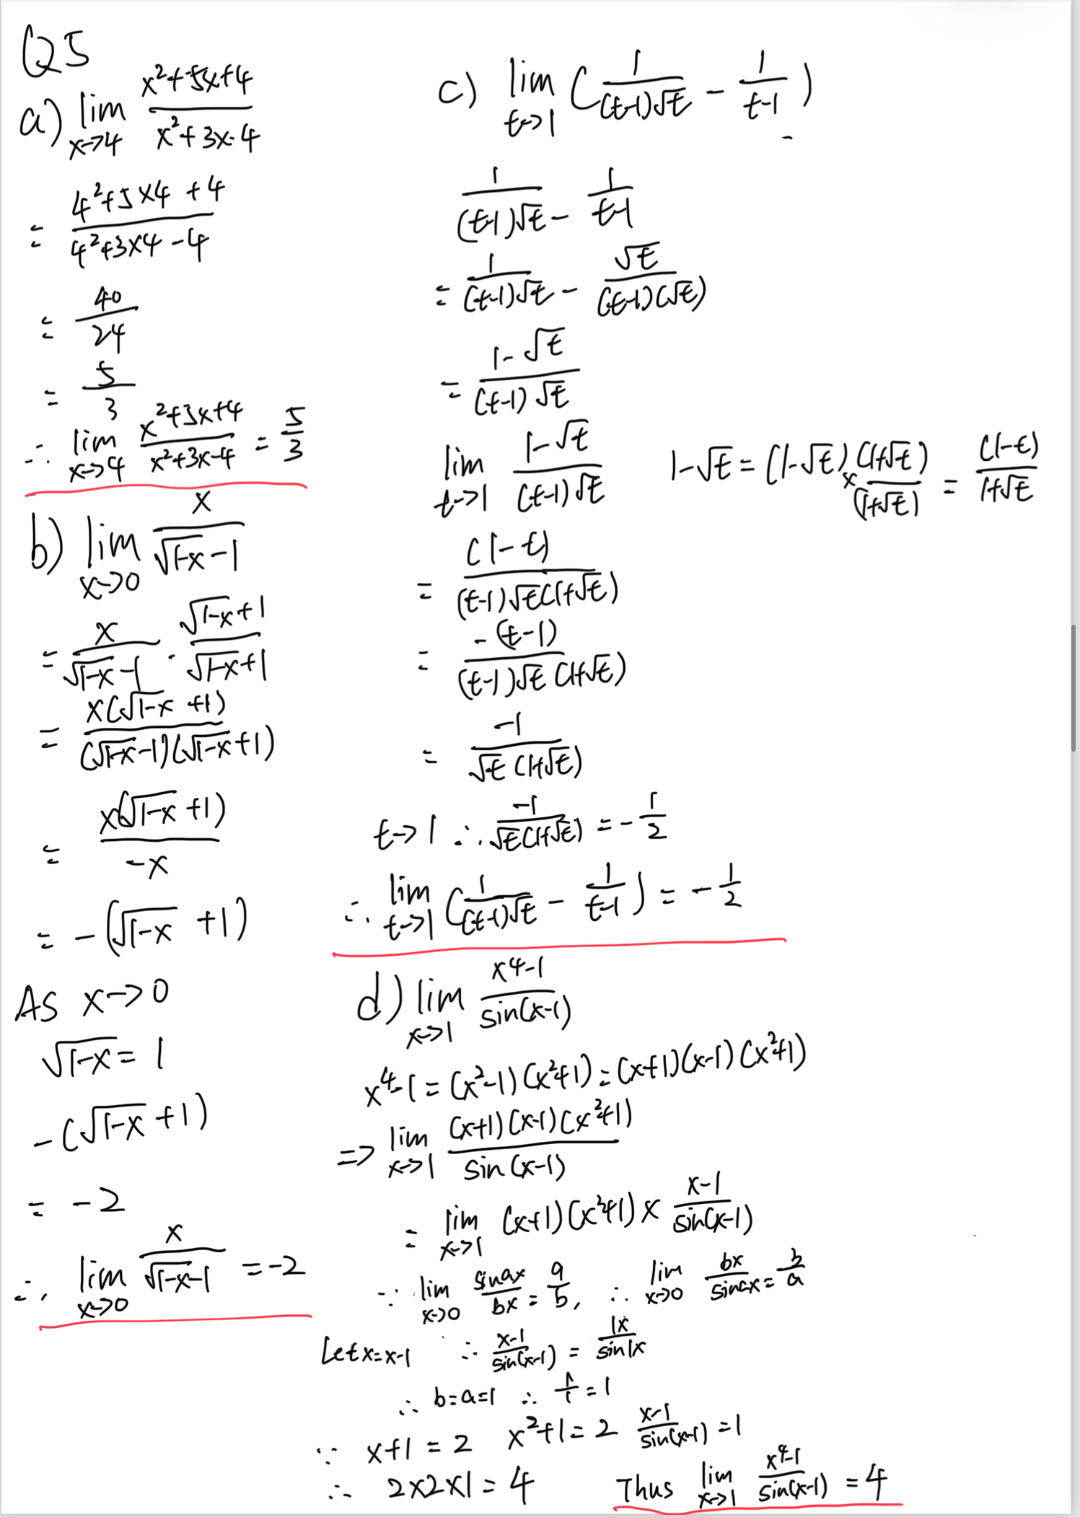 Q5
a) lim x→4 (x²+5x+4)/(x²+3x-4)
= (4²+5×4+4)/(4²+3×4-4)
= 40/24
= 5/3
∴ lim x→4 (x²+5x+4)/(x²+3x-4) = 5/3
b) lim x→0 x/(√(1-x)-1)
= x/(√(1-x)-1) · (√(1-x)+1)/(√(1-x)+1)
= x(√(1-x)+1)/((√(1-x)-1)(√(1-x)+1))
= x(√(1-x)+1)/(-x)
= -(√(1-x)+1)
As x→0
√(1-x) = 1
-(√(1-x)+1)
= -2
∴ lim x→0 x/(√(1-x)-1) = -2
c) lim t→1 (1/((t-1)√t) - 1/(t-1))
1/((t-1)√t) - 1/(t-1)
= 1/((t-1)√t) - √t/((t-1)(√t))
= (1-√t)/((t-1)√t)
lim t→1 (1-√t)/((t-1)√t)
1-√t = (1-√t) × (1+√t)/(1+√t) = (1-t)/(1+√t)
= (1-t)/((t-1)√t(1+√t))
= -(t-1)/((t-1)√t(1+√t))
= -1/(√t(1+√t))
t→1 ∴ -1/(√t(1+√t)) = -1/2
∴ lim t→1 (1/((t-1)√t) - 1/(t-1)) = -1/2
d) lim x→1 (x⁴-1)/sin(x-1)
x⁴-1 = (x²-1)(x²+1) = (x+1)(x-1)(x²+1)
=> lim x→1 (x+1)(x-1)(x²+1)/sin(x-1)
= lim x→1 (x+1)(x²+1) × (x-1)/sin(x-1)
∵ lim x→0 sinax/bx = a/b, ∴ lim x→0 bx/sinax = b/a
Let x=x-1 ∴ (x-1)/sin(x-1) = 1x/sin1x
∴ b=a=1 ∴ 1/1 = 1
∵ x+1 = 2 x²+1 = 2 (x-1)/sin(x-1) = 1
∴ 2×2×1 = 4 Thus lim x→1 (x⁴-1)/sin(x-1) = 4